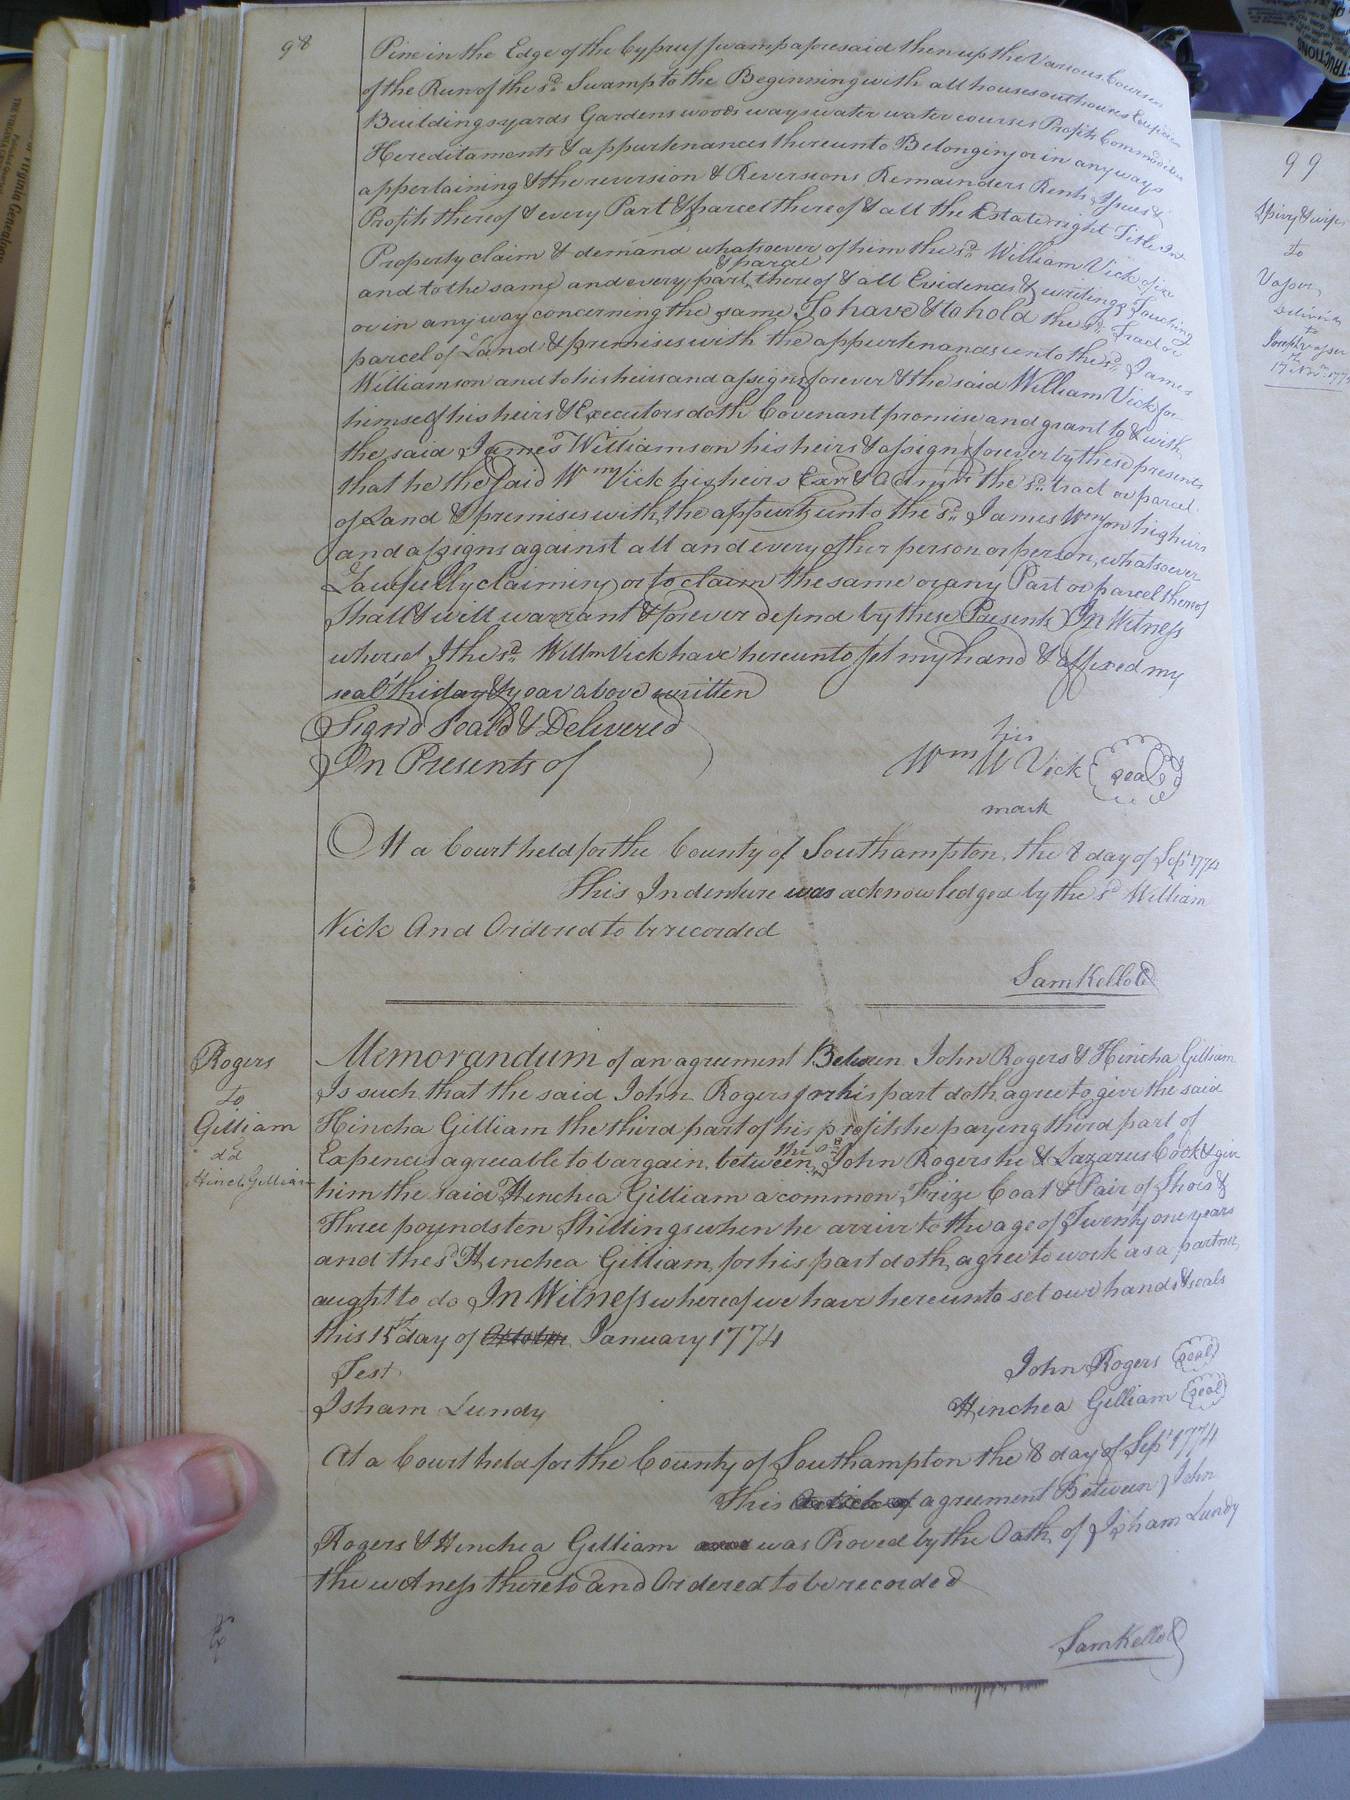 98
Pine in the Edge of the Cypruss swamp aforesaid then up the Various Courses
of the Run of the sd. Swamp to the Beginning with all houses outhouses
Buildings yards Gardens woods ways water water courses Profits Commodities
Hereditaments & appurtenances thereunto Belonging or in any ways
appertaining & the reversion & Reversions Remainders Rents Issues &
Profits thereof & every Part & parcel thereof & all the Estate right Title Int
Property claim & demand whatsoever of him the sd. William Vick of in
and to the same and every part & parcel thereof & all Evidences & writings Touching
or in any way concerning the same To have & to hold the sd. Tract or
parcel of Land & premises with the appurtenances unto the sd. James
Williamson and to his heirs and assigns forever & the said William Vick for
himself his heirs & Executors doth Covenant promise and grant to & with
the said James Williamson his heirs & assigns forever by these presents
that he the Said Wm Vick his heirs Exrs & Admrs the sd. tract or parcel
of Land & premises with the appurts unto the sd. James Wmson his heirs
and assigns against all and every other person or person, whatsoever
Lawfully claiming or to claim the same or any Part or parcel thereof
Shall & will warrant & forever defend by these Presents In Witness
whereof I the sd. Willm Vick have hereunto set my hand & affixed my
seal this day & year above written
Signd Seald & Delivered
In Presents of
his
Wm W Vick seal
mark
At a Court held for the County of Southampton, the 8 day of Sept 1774
This Indenture was acknowledged by the sd William
Vick And Ordered to be recorded
Sam Kello C
Rogers
to
Gilliam
dd
Hincha Gilliam
Memorandum of an agreement Between John Rogers & Hincha Gilliam
Is such that the said John Rogers for his part doth agree to give the said
Hincha Gilliam the third part of his profits he paying third part of
Expences agreeable to bargain, between the sd John Rogers he & Lazarus Cook & give
him the said Hinchea Gilliam a common Frize Coat & Pair of Shoes &
Three pounds ten Shillings when he arrive to the age of Twenty one years
and the sd Hinchea Gilliam, for his part doth agree to work as a partner
aught to do In Witness whereof we have hereunto set our hands & seals
this 15th day of October January 1774
Test
John Rogers seal
Isham Lundy
Hinchea Gilliam seal
At a Court held for the County of Southampton the 8 day of Sept 1774
This Article of agreement Between John
Rogers & Hinchea Gilliam was Proved by the Oath of Isham Lundy
the witness thereto and Ordered to be recorded
Sam Kello C
99
Spivy & wife
to
Vasser
Delivered
to
Joseph Vasser